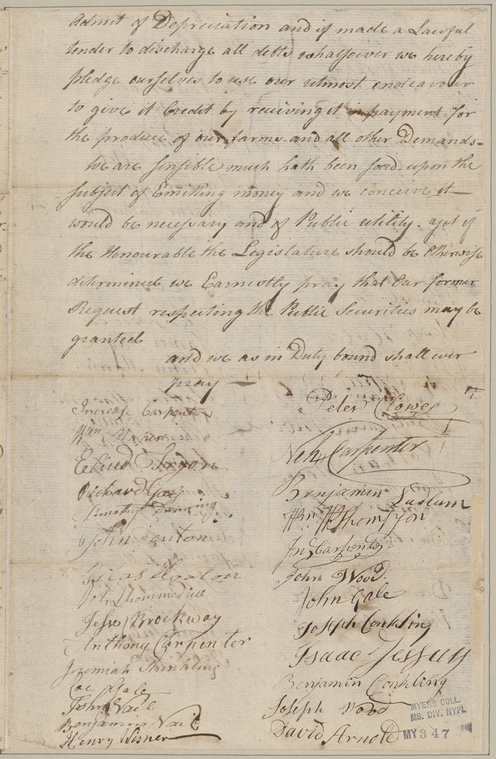 admit of Depreciation and if made a Lawful
tender to discharge all debts whatsoever we hereby
pledge ourselves to use our utmost endeavour
to give it Credit by receiving it in payment for
the produce of our farms and all other Demands—
we are sensible much hath been said upon the
subject of Emitting money and we conceive it
would be necessary and of Public utility. yet if
the Honourable the Legislature should be Otherwise
determined we Earnestly pray that Our former
Request respecting the Public Securities may be
granted
and we as in Duty bound shall ever
pray —
Increase Carpenter
Peter Clowes
Wm
Neh Carpenter
Richard
Benjamin Ludlum
Timothy
Wm Thompson
John
Jn Carpenter
Horton
John Wood
John
John Gale
Jesse Brockway
Joseph Conkling
Anthony Carpenter
Isaac Jessup
Jeremiah
Benjamin Conkling
Coe Gale
Joseph Wood
John Vail
David Arnott
Benjamin Vail
Henry Wisner
MYERS COLL.
MS. DIV. NYPL
MY 3 47